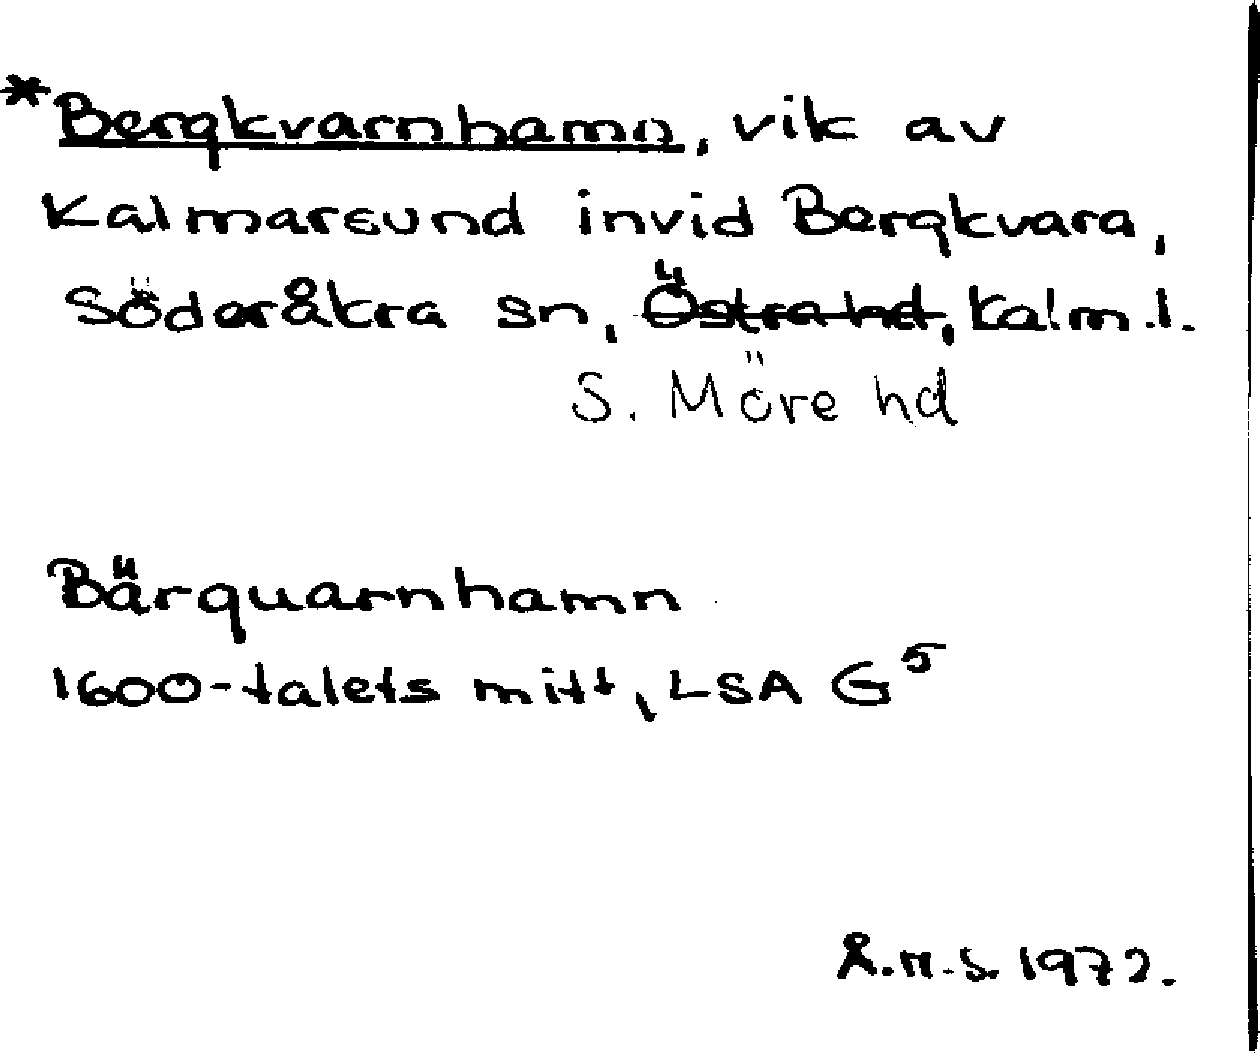 *Bergkvarnhamn, vik av
Kalmarsund invid Bergkvara,
Söderåkra sn, Östra hd, Kalm.l.
S. Möre hd
Bärquarnhamn
1600-talets mitt, LSA G5
Å.H.S. 1972.